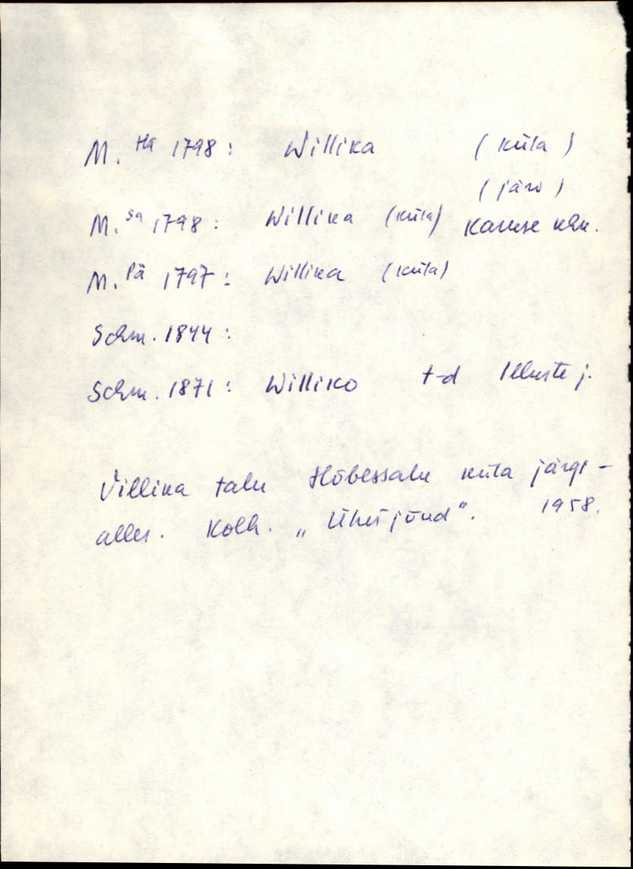 M. Ha 1798: Willika (küla)
(järv)
M. Sa 1798: Willika (küla) Karuse khn.
M. Pä 1797: Willika (küla)
Schm. 1844:
Schm. 1871: Williko t-d Illuste j.
Villika talu Hõbessalu küla järgi-
alles. Kolh. „Ühisjõud". 1958.